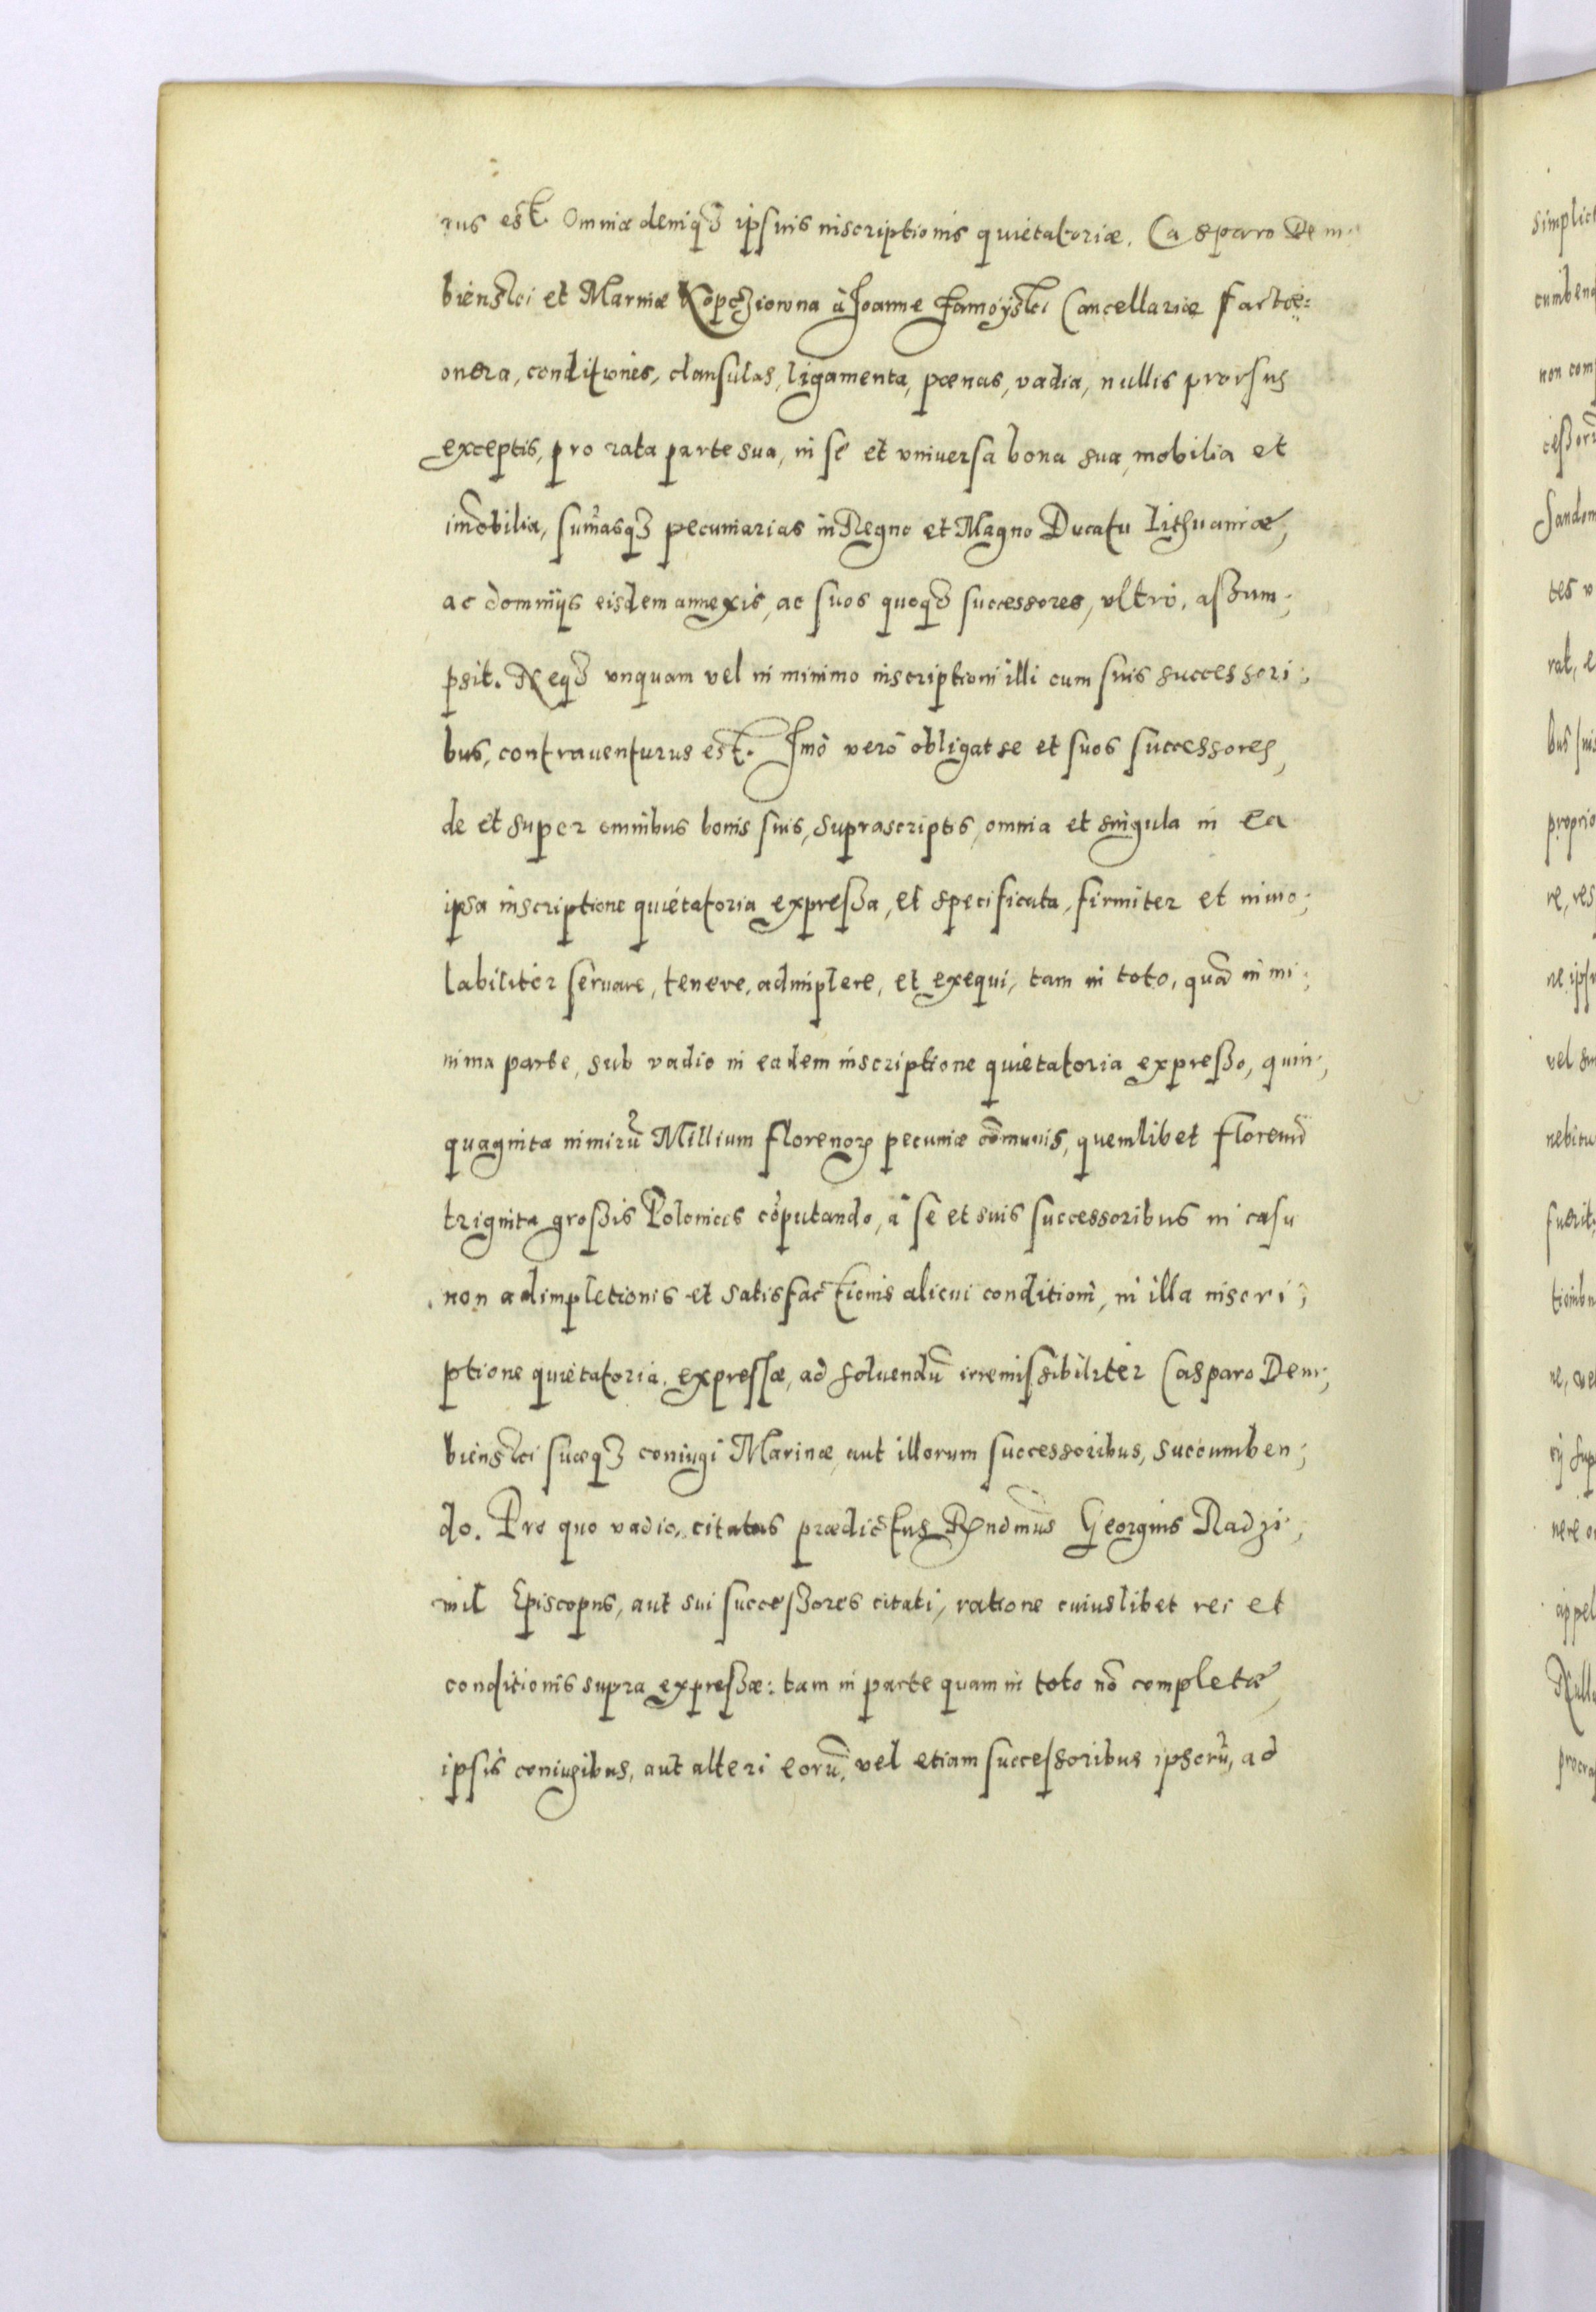 rus est. Omnia deniqꝫ ipsius inscriptionis quietatoriæ, Casparo Dem:
bienski et Marinæ Kopcziowna à Joanne Zamoyski Cancellario factæ:
onera, conditiones, clausulas, ligamenta, pœnas, vadia, nullis prorsus
exceptis, pro rata parte sua, in se et vniuersa bona sua, mobilia et
im̃obilia, sum̃asqꝫ pecuniarias in Regno et Magno Ducatu Lithuaniæ,
ac dominijs eisdem annexis, ac suos quoqꝫ successores, vltrò, assum:
psit. Neqꝫ vnquam vel in minimo inscriptioni illi cum suis successori:
bus, contrauenturus est. Imò verò obligat se et suos successores,
de et super omnibus bonis suis, suprascriptis, omnia et singula in ea
ipsa inscriptione quietatoria expressa, et specificata, firmiter et inuio:
labiliter seruare, tenere, adimplere, et exequi, tam in toto, quã in mi:
nima parte, sub vadio in eadem inscriptione quietatoria expresso, quin:
quaginta nimirũ Millium florenoꝝ pecuniæ cõmunis, quemlibet florenũ
triginta grossis Polonicis cõputando, à se et suis successoribus in casu
non adimpletionis et satisfactionis alicui conditioni, in illa inscri:
ptione quietatoria, expressæ, ad soluendũ irremissibiliter Casparo Dem:
bienski suæqꝫ coniugi Marinæ, aut illorum successoribus, succumben:
do. Pro quo vadio, citatus prædictus Rṇdmus Georgius Radzi:
wil Episcopus, aut sui successores citati, ratione cuiuslibet rei et
conditionis supra expressæ: tam in parte quam in toto nõ completæ,
ipsis coniugibus, aut alteri eorũ, vel etiam successoribus ipsorũ, ad
simplici
cumben
non com
cessor
Sandom
tes v
rat, e
bus suis
proprio
re, res
ne ipsi
vel
nebitu
fuerit,
tionibu
ne, vel
rij sup
nere o
appel
Null
procra